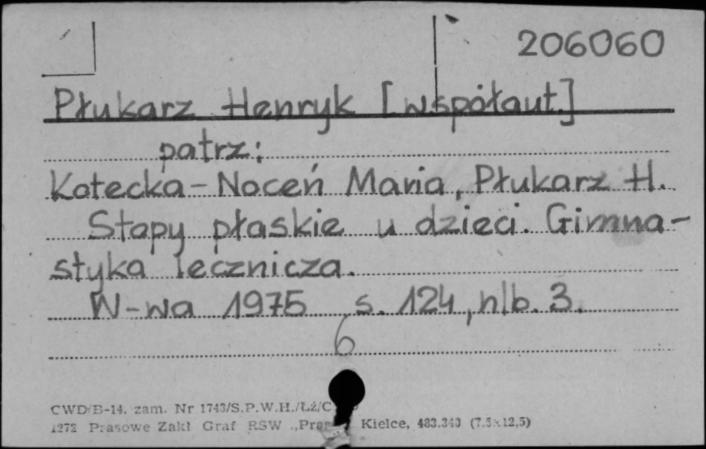 206060
Płukarz Henryk [współaut.]
patrz:
Kotecka-Noceń Maria, Płukarz H.
Stopy płaskie u dzieci. Gimna-
styka lecznicza.
W-wa 1975 s. 124, nlb. 3.
6
CWD/B-14. zam. Nr 1743/S.P.W.H./Łź/C
1272 Prasowe Zakł Graf RSW „Prasa Kielce, 483.340 (7.5x12,5)